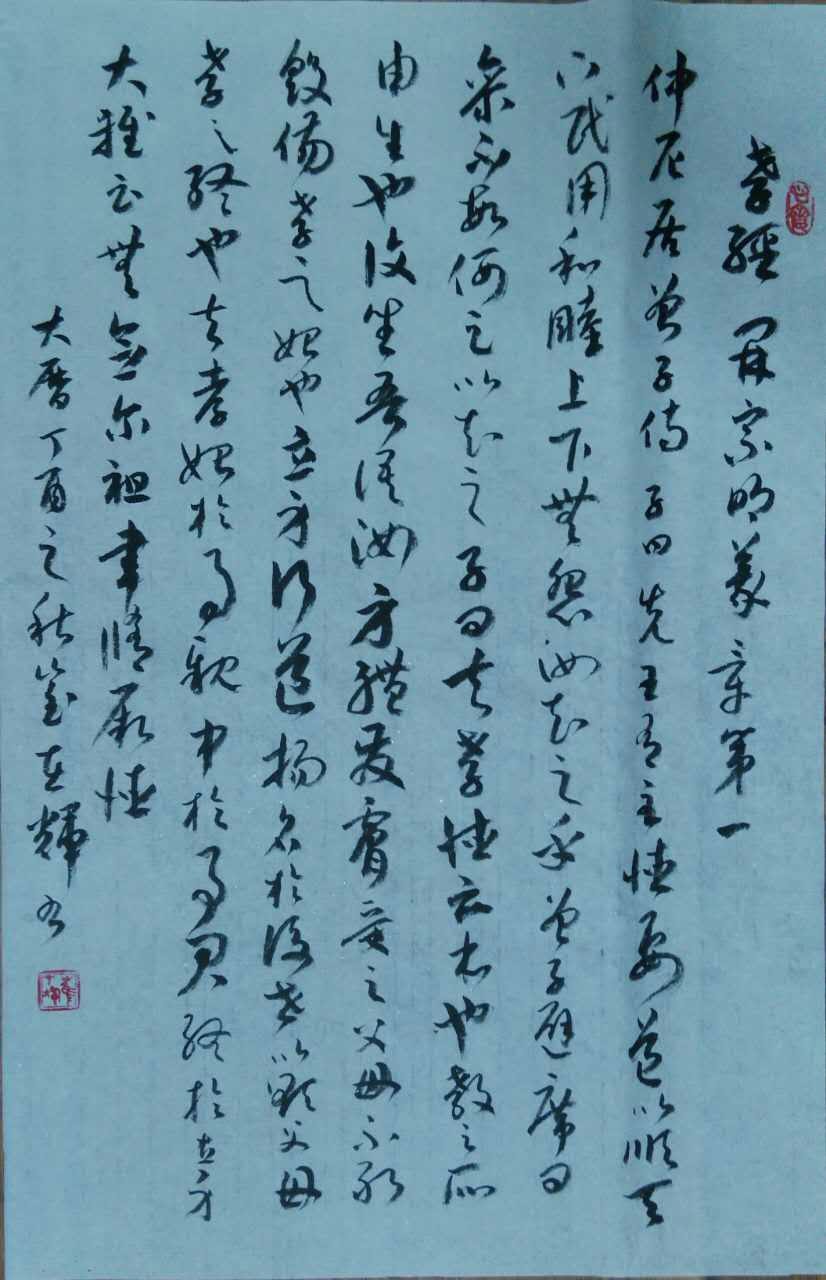 孝經 開宗明義章第一
仲尼居曾子侍子曰先王有至德要道以順天
下民用和睦上下無怨汝知之乎曾子避席曰
參不敏何足以知之子曰夫孝德之本也教之所
由生也復坐吾語汝身體髮膚受之父母不敢
毀傷孝之始也立身行道揚名於後世以顯父母
孝之終也夫孝始於事親中於事君終於立身
大雅云無念尔祖聿脩厥德
大曆丁酉之秋在輝書